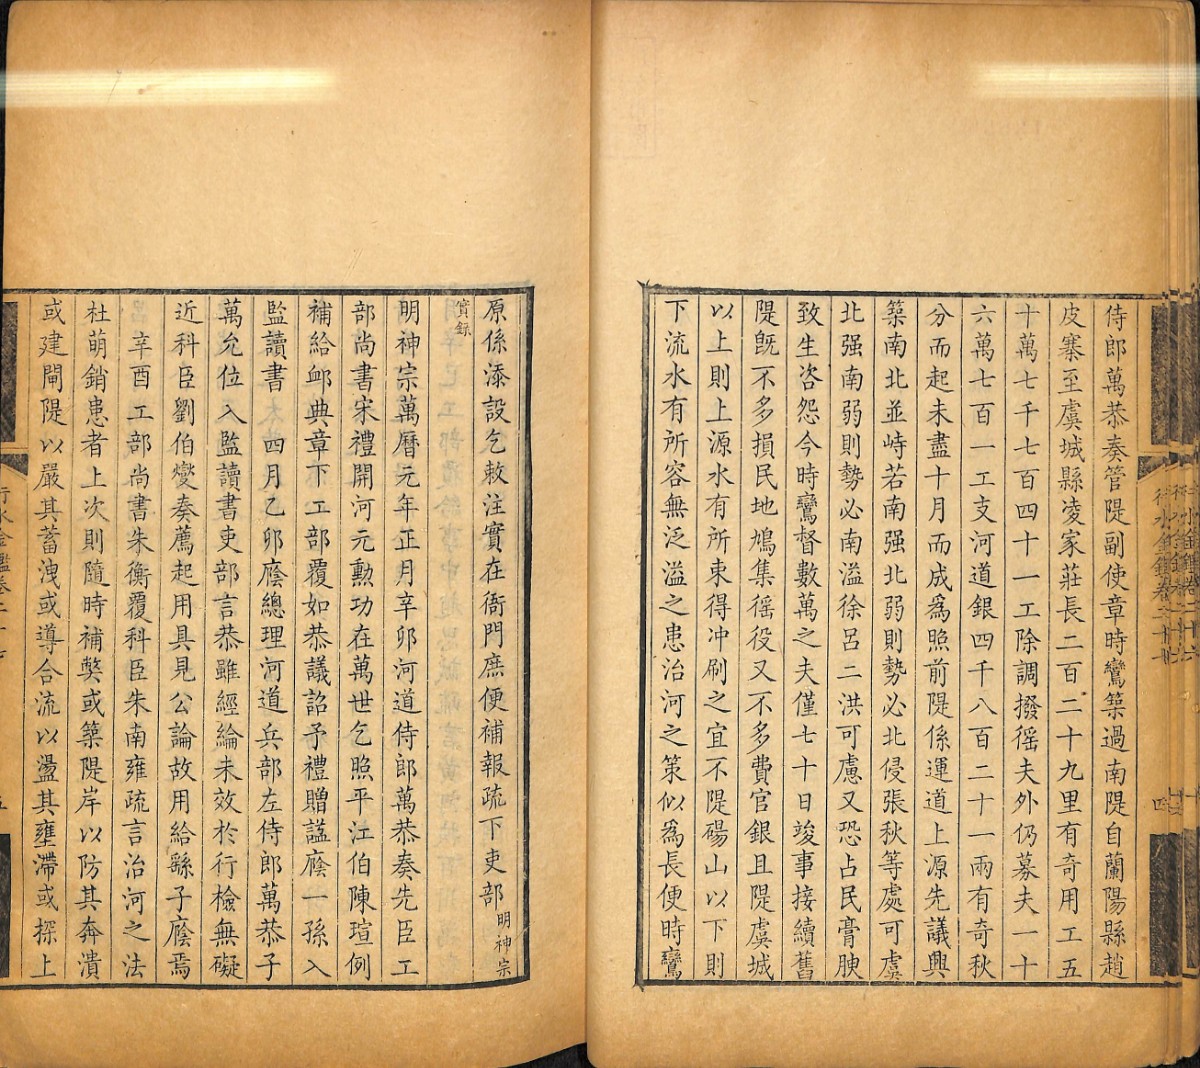 侍郎萬恭奏管隄副使章時鸞築過南隄自蘭陽縣趙
皮寨至虞城縣凌家莊長二百二十九里有奇用工五
十萬七千七百四十一工除調撥徭夫外仍募夫一十
六萬七百一工支河道銀四千八百二十一兩有奇秋
分而起未盡十月而成爲照前隄係運道上源先議興
築南北並峙若南强北弱則勢必北侵張秋等處可虞
北强南弱則勢必南溢徐呂二洪可慮又恐占民膏腴
致生咨怨今時鸞督數萬之夫僅七十日竣事接續舊
隄旣不多損民地鳩集徭役又不多費官銀且隄虞城
以上則上源水有所束得冲刷之宜不隄碭山以下則
下流水有所容無泛溢之患治河之策似爲長便時鸞
原係添設乞敕注實在衙門庶便補報疏下吏部明神宗
實錄
明神宗萬曆元年正月辛卯河道侍郎萬恭奏先臣工
部尚書宋禮開河元勳功在萬世乞照平江伯陳瑄例
補給卹典章下工部覆如恭議詔予禮贈諡廕一孫入
監讀書 四月乙卯廕總理河道兵部左侍郎萬恭子
萬允位入監讀書吏部言恭雖經綸未效於行檢無礙
近科臣劉伯燮奏薦起用具見公論故用給繇子廕焉
辛酉工部尚書朱衡覆科臣朱南雍疏言治河之法
杜萌銷患者上次則隨時補獘或築隄岸以防其奔潰
或建閘隄以嚴其蓄洩或導合流以盪其壅滯或探上